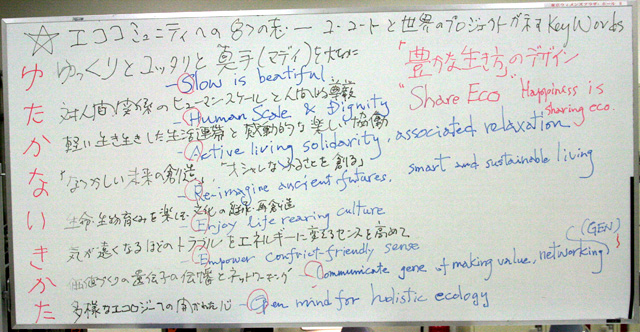 ☆エココミュニティへの8つの志 — ユーコートと世界のプロジェクトが示す KeyWorbs
ゆっくりとユッタリと真手(マデイ)を大切に
- Slow is beautiful
対人間関係のヒューマンスケールと人間的尊厳
- Human Scale & Dignity
軽い生き生きした生活連帯と感動的な楽しい協働
- Active living solidarity, associated relaxation
「なつかしい未来の創造」、「オシャレなふるさとを創る」
- Re-imagine ancient futures, smart and sustainable living
生命・生物育くみを楽しむ文化の継承・再創造
- Enjoy life rearing culture
気が遠くなるほどのトラブルをエネルギーに変えるセンスを高めて
- Empower confrict-friendly sense
価値づくりの遺伝子の伝播とネットワーキング
Communicate gene of making value, networking (GEN)
多様なエコロジーへの開かれた心
- Open mind for holistic ecology
ゆたかないきかた
「豊かな生き方」のデザイン
"Share Eco"
Happiness is
sharing eco.